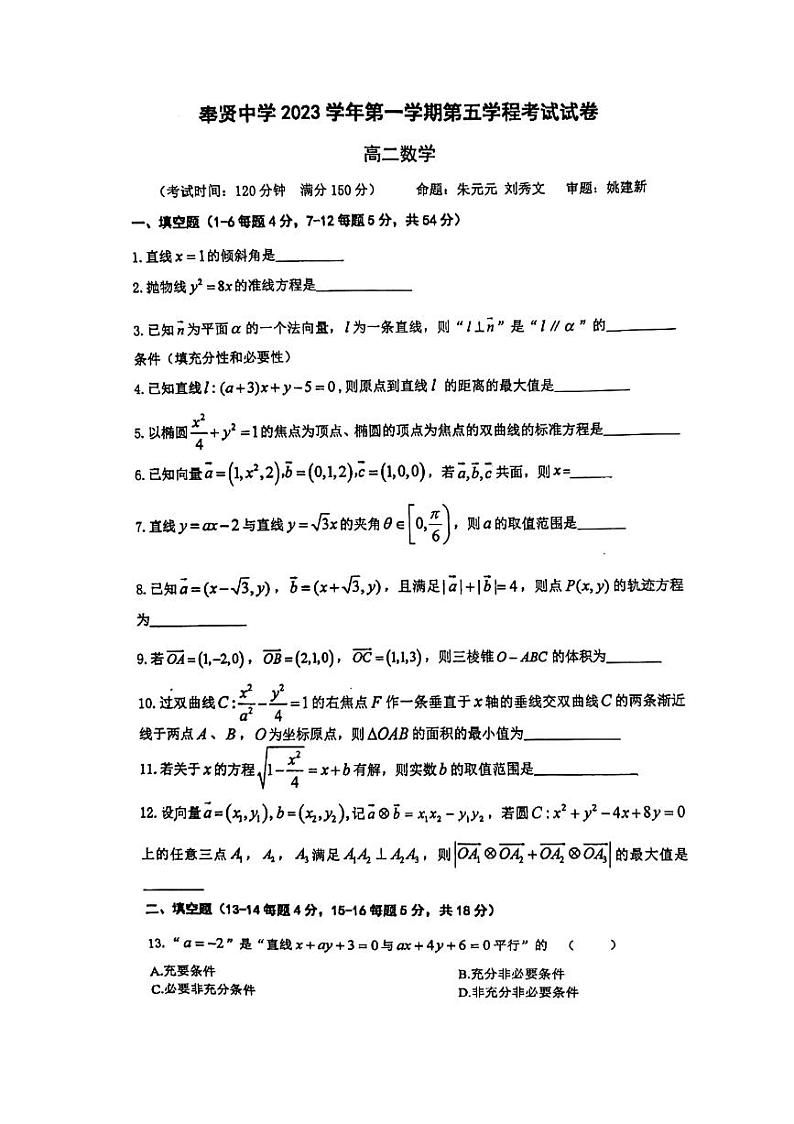 奉贤中学 2023 学年第一学期第五学程考试试卷
高二数学
（考试时间：120 分钟　满分 150 分）　命题：朱元元 刘秀文　审题：姚建新
一、填空题（1-6 每题 4 分，7-12 每题 5 分，共 54 分）
1. 直线 x = 1 的倾斜角是________
2. 抛物线 y² = 8x 的准线方程是________
3. 已知 n⃗ 为平面 α 的一个法向量，l 为一条直线，则 “l ⊥ n⃗” 是 “l // α” 的________
条件（填充分性和必要性）
4. 已知直线 l : (a+3)x + y − 5 = 0 , 则原点到直线 l 的距离的最大值是________
5. 以椭圆 x²/4 + y² = 1 的焦点为顶点、椭圆的顶点为焦点的双曲线的标准方程是________
6. 已知向量 a⃗ = (1, x², 2), b⃗ = (0,1,2), c⃗ = (1,0,0)，若 a⃗, b⃗, c⃗ 共面，则 x=________
7. 直线 y = ax − 2 与直线 y = √3x 的夹角 θ ∈ [0, π/6)，则 a 的取值范围是________
8. 已知 a⃗ = (x − √3, y)，b⃗ = (x + √3, y)，且满足 |a⃗| + |b⃗| = 4，则点 P(x, y) 的轨迹方程
为________
9. 若 OA⃗ = (1,−2,0)，OB⃗ = (2,1,0)，OC⃗ = (1,1,3)，则三棱锥 O − ABC 的体积为________
10. 过双曲线 C : x²/a² − y²/4 = 1 的右焦点 F 作一条垂直于 x 轴的垂线交双曲线 C 的两条渐近
线于两点 A 、 B ，O 为坐标原点，则 ΔOAB 的面积的最小值为________
11. 若关于 x 的方程 √(1 − x²/4) = x + b 有解，则实数 b 的取值范围是________
12. 设向量 a⃗ = (x₁, y₁), b = (x₂, y₂), 记 a⃗ ⊗ b⃗ = x₁x₂ − y₁y₂，若圆 C : x² + y² − 4x + 8y = 0
上的任意三点 A₁，A₂，A₃ 满足 A₁A₂ ⊥ A₂A₃，则 |OA₁⃗ ⊗ OA₂⃗ + OA₂⃗ ⊗ OA₃⃗| 的最大值是
________
二、填空题（13-14 每题 4 分，15-16 每题 5 分，共 18 分）
13. “ a = −2 ” 是 “直线 x + ay + 3 = 0 与 ax + 4y + 6 = 0 平行” 的 （　　）
A.充要条件　　B.充分非必要条件
C.必要非充分条件　　D.非充分非必要条件